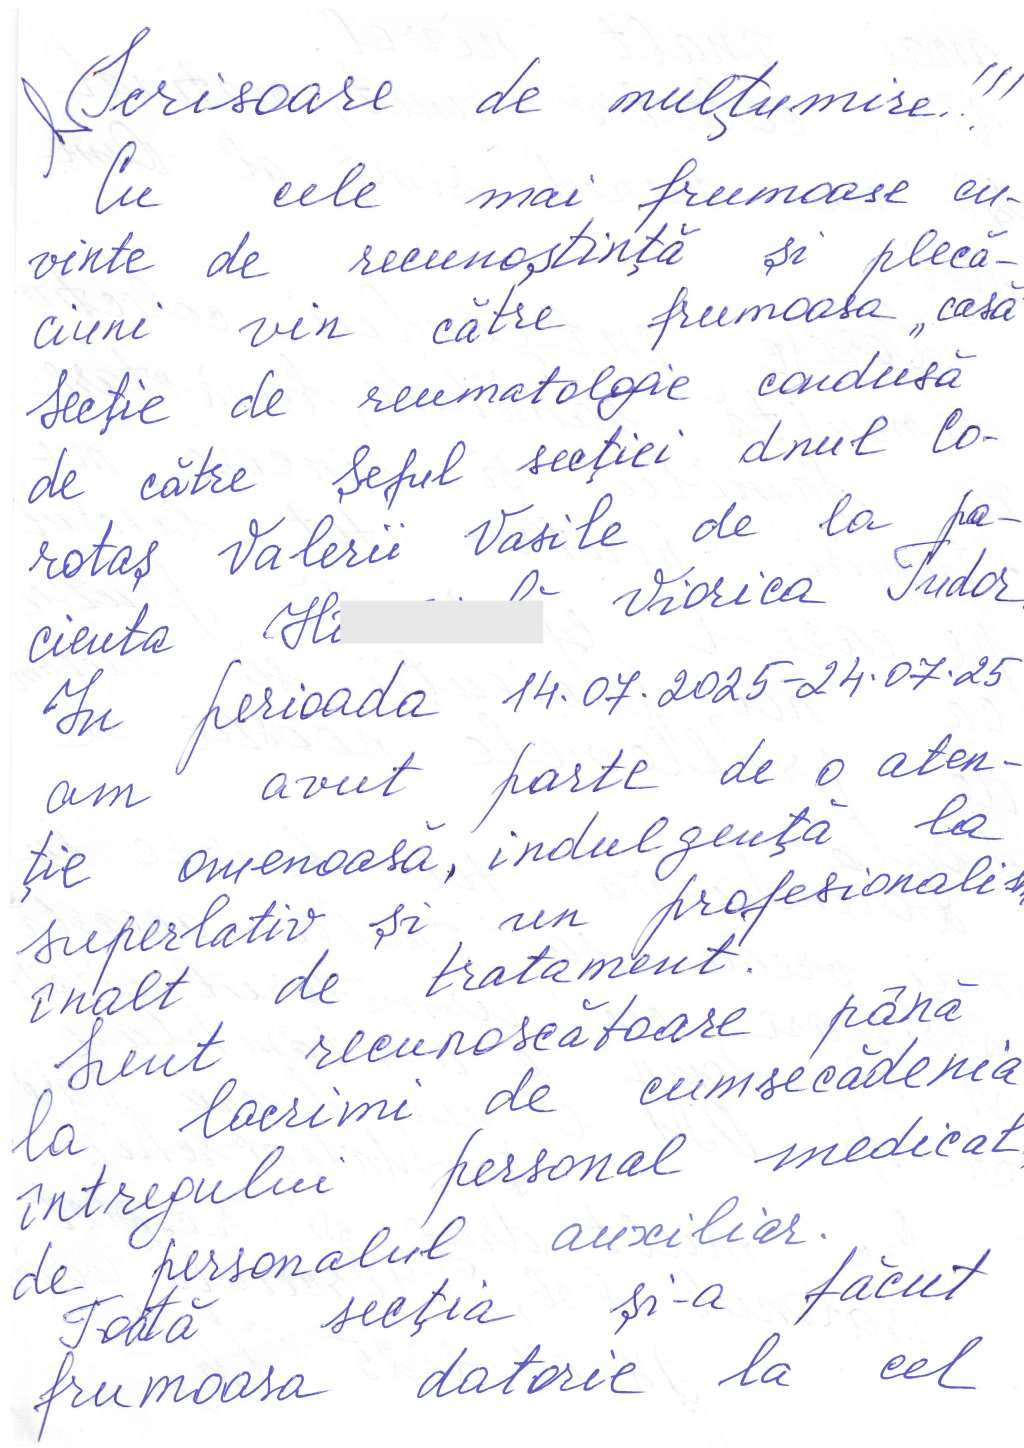 Scrisoare de mulțumire!!!
Cu cele mai frumoase cu-
vinte de recunoștință și plecă-
ciuni vin către frumoasa „casă
Secție de reumatologie condusă
de către Șeful secției dnul Co-
rotaș Valerii Vasile de la pa-
cienta Viorica Tudor.
In perioada 14.07.2025-24.07.25
am avut parte de o aten-
ție omenoasă, indulgență la
superlativ și un profesionalism
înalt de tratament.
Sunt recunoscătoare până
la lacrimi de cumsecădenia
întregului personal medical,
de personalul auxiliar.
Toată secția și-a făcut
frumoasa datorie la cel